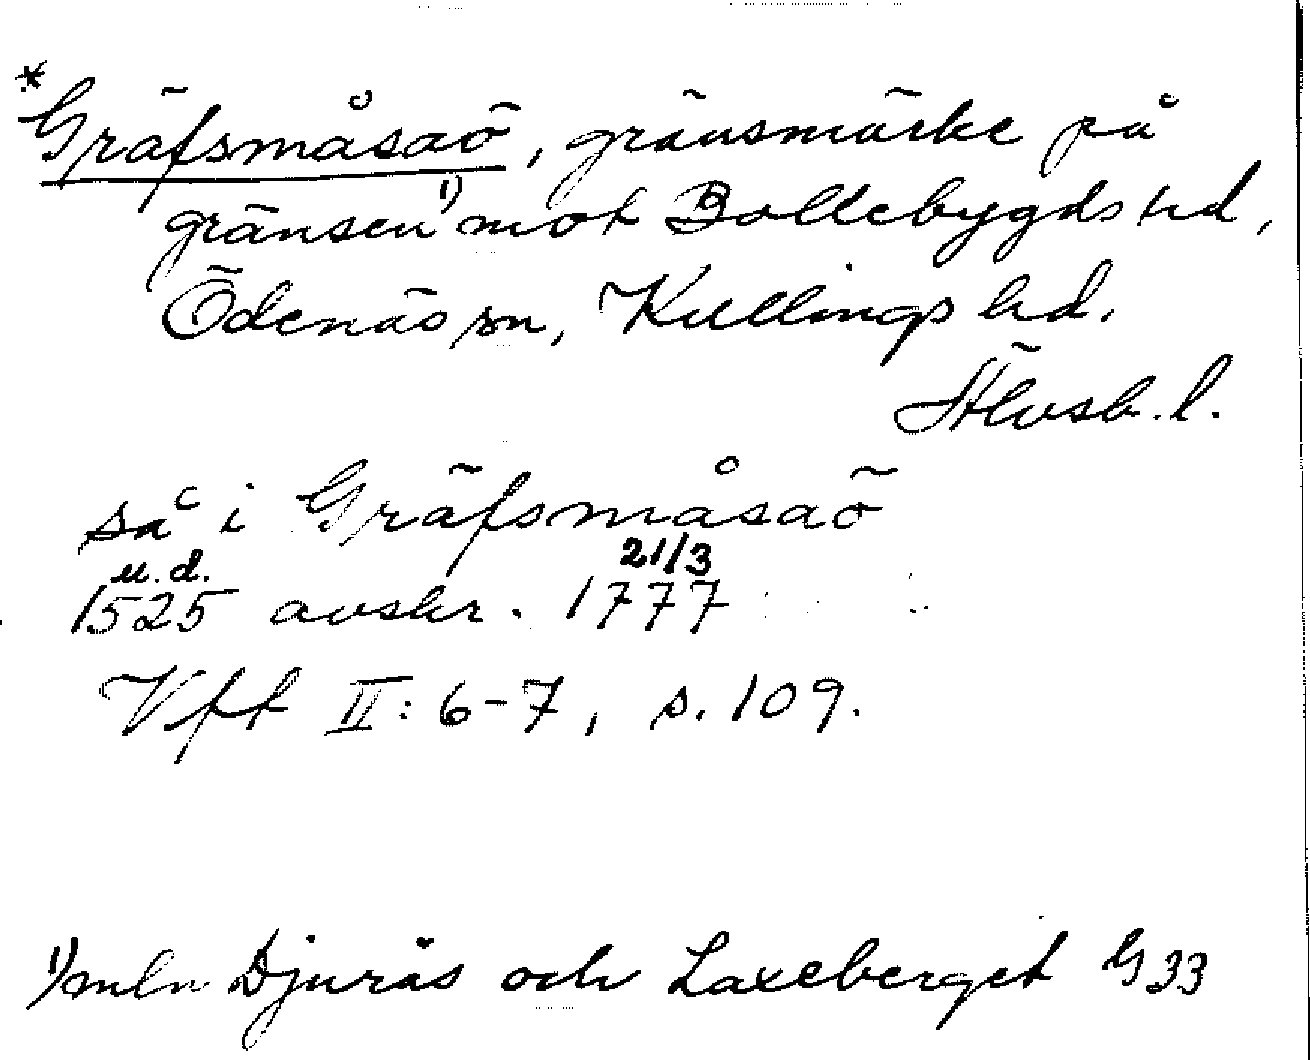 *Gräfsmåsaö, gränsmärke på
gränsen¹⁾ mot Bollebygds hd,
Ödenäs sn, Kullings hd.
Älvsb. l.
så i Gräfsmåsaö
u.d. 21/3
1525 avskr. 1777
Vft II: 6-7, s. 109.
¹⁾mln Djuräs och Laxeberget G 33